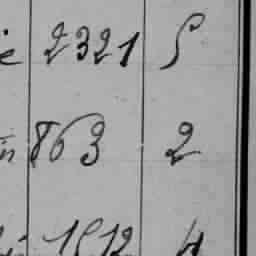 e 2321 5
in 863 2
1512 4